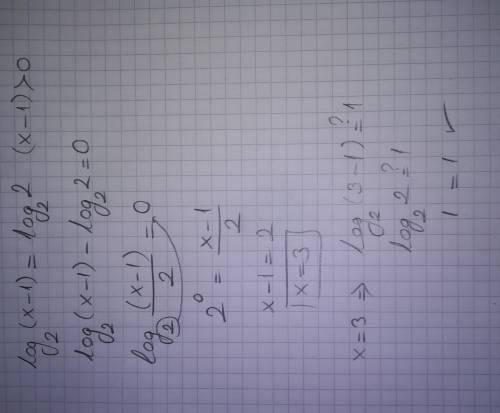 log₂(x-1) = log₂2 (x-1)>0
log₂(x-1) - log₂2 = 0
log₂ (x-1)/2 = 0
2⁰ = x-1/2
x-1 = 2
x=3
x=3 ⇒ log₂(3-1) ≟ 1
log₂2 ≟ 1
1 = 1 ✓